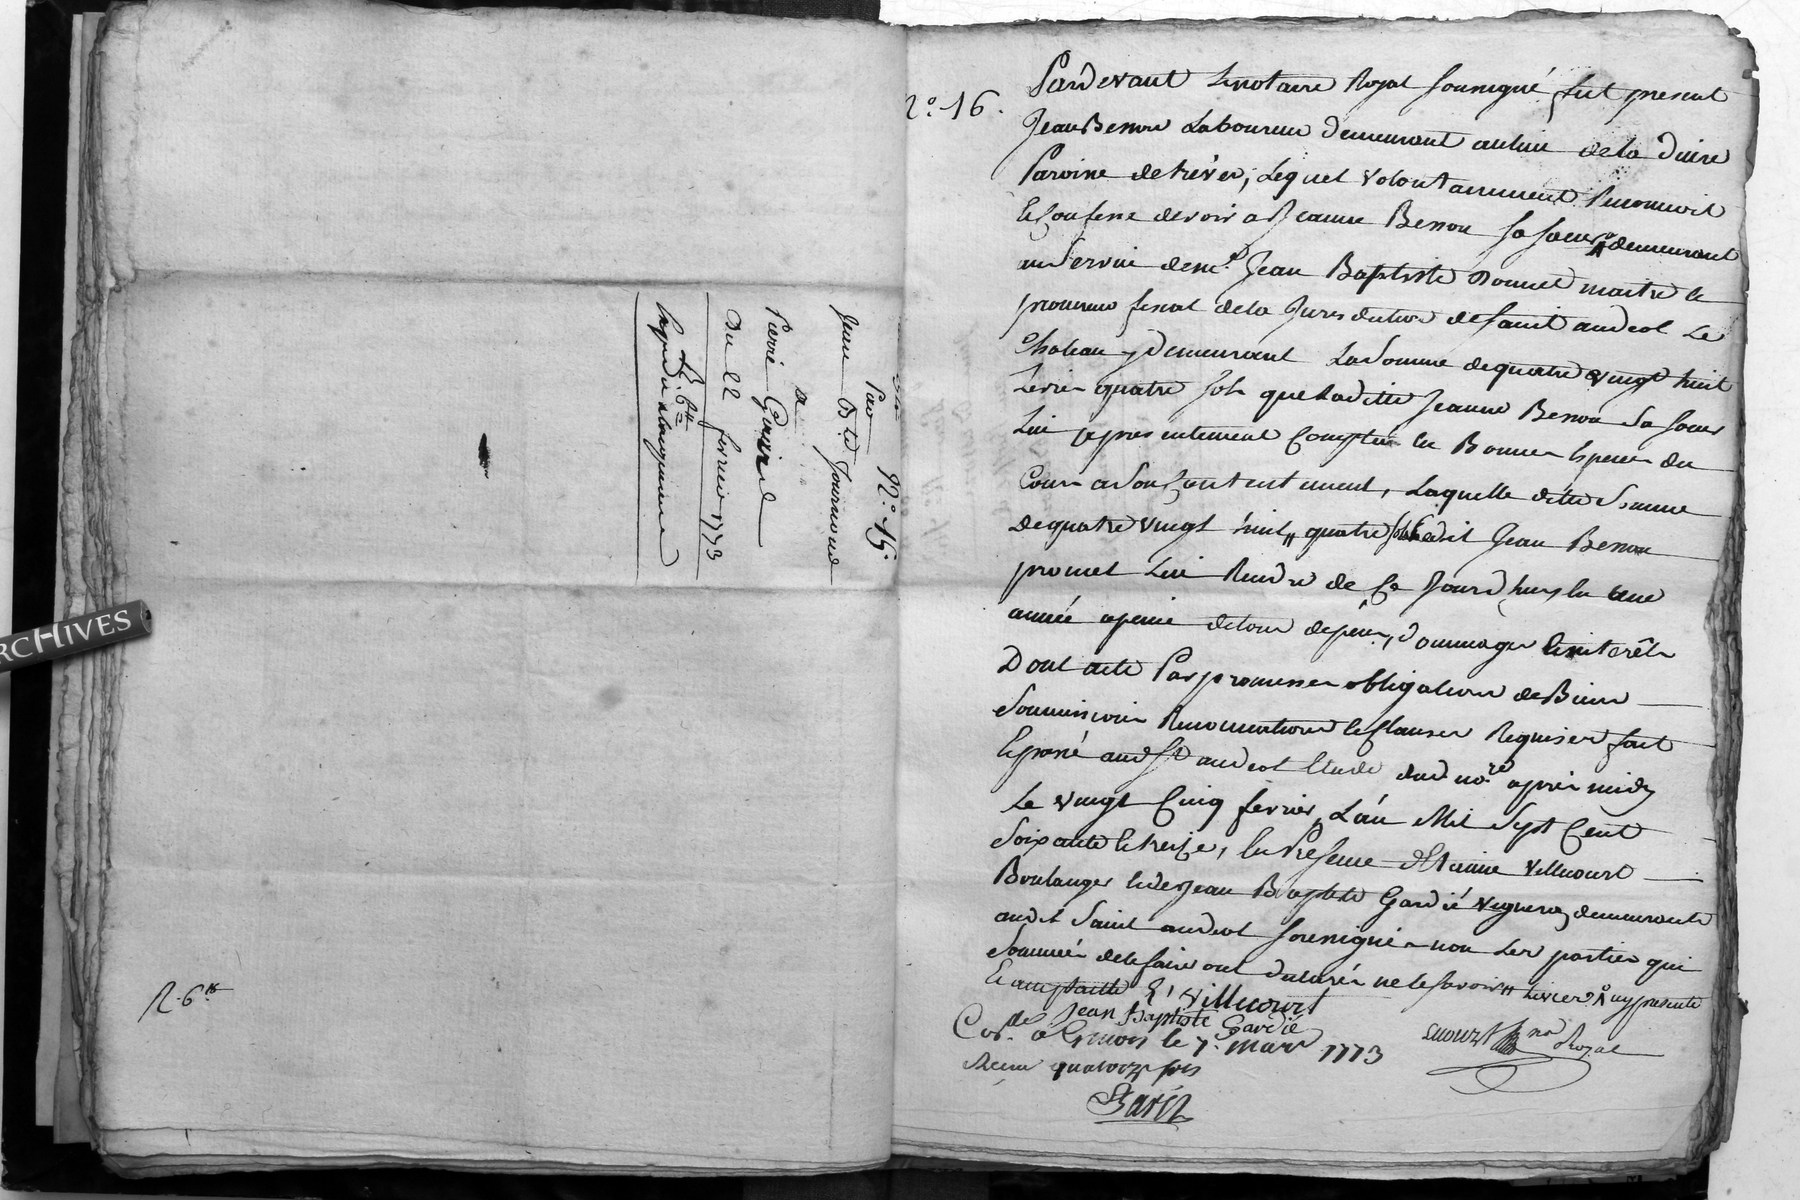 N.° 15.
Par
Jean Bte Journoud
a
Pierre Guiard
Du 22 fevrier 1773
R. 6tt
R. 6tt
ARCHIVES
N.° 16.
Pardevant le notaire Royal sousigné fut present
Jean Besson Laboureur demeurant au lieu de la Duire
Paroisse de trèves, Lequel volontairement Reconnoit
et Confesse devoir a Jeanne Besson sa soeur demeurant
au Service de me. Jean Baptiste Bonnet maitre et
procureur fiscal de la Jurisdiction de saint andeol Le
Chateau y demeurant La Somme de quatre vingt huit
Livres quatre sols que Laditte Jeanne Besson Sa soeur
Lui a presentement Comptée en Bonnes Especes du
Cours a son Contentement, Laquelle ditte Somme
de quatre vingt huit tt quatre sols Ledit Jean Besson
promet Lui Rendre de Ce Jourdhuy en une
année a peine de tous depens, dommages Et interêts
Dont acte Par promesses obligations de Biens
Soumissions Renonciations et Clauses Requises fait
Et passé audt St andeol Etude dud no.re après midy
Le vingt Cinq fevrier L'an Mil Sept Cent
Soixante et treize, En Presence d'Etienne Villecourt
Boulanger et de Jean Baptiste Gardié vigneron demeurants
audit Saint andeol sousignés non Les parties qui
Sommées de le faire ont declarés ne le savoir
E. Villecourt
Jean Baptiste Gardié
Cot.lé a Givors le 7. mars 1773
Recu quatorze sols
no Royal